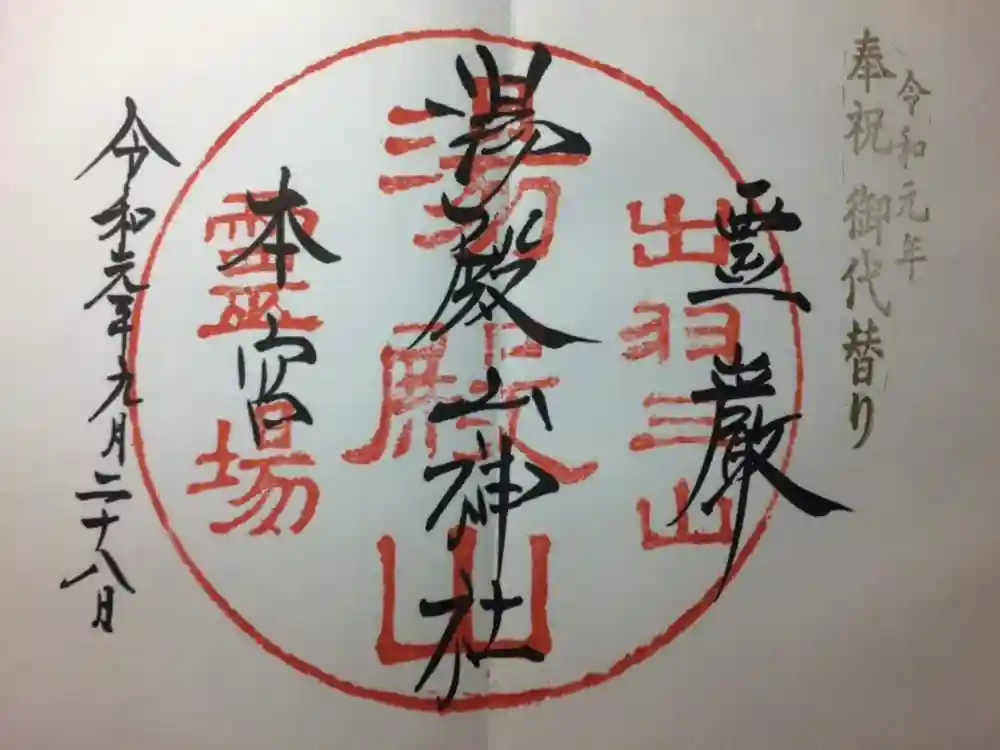 令和元年
奉祝 御代替り
霊巌
出羽三山
湯殿山神社
湯殿山
本宮
霊場
令和元年九月二十八日